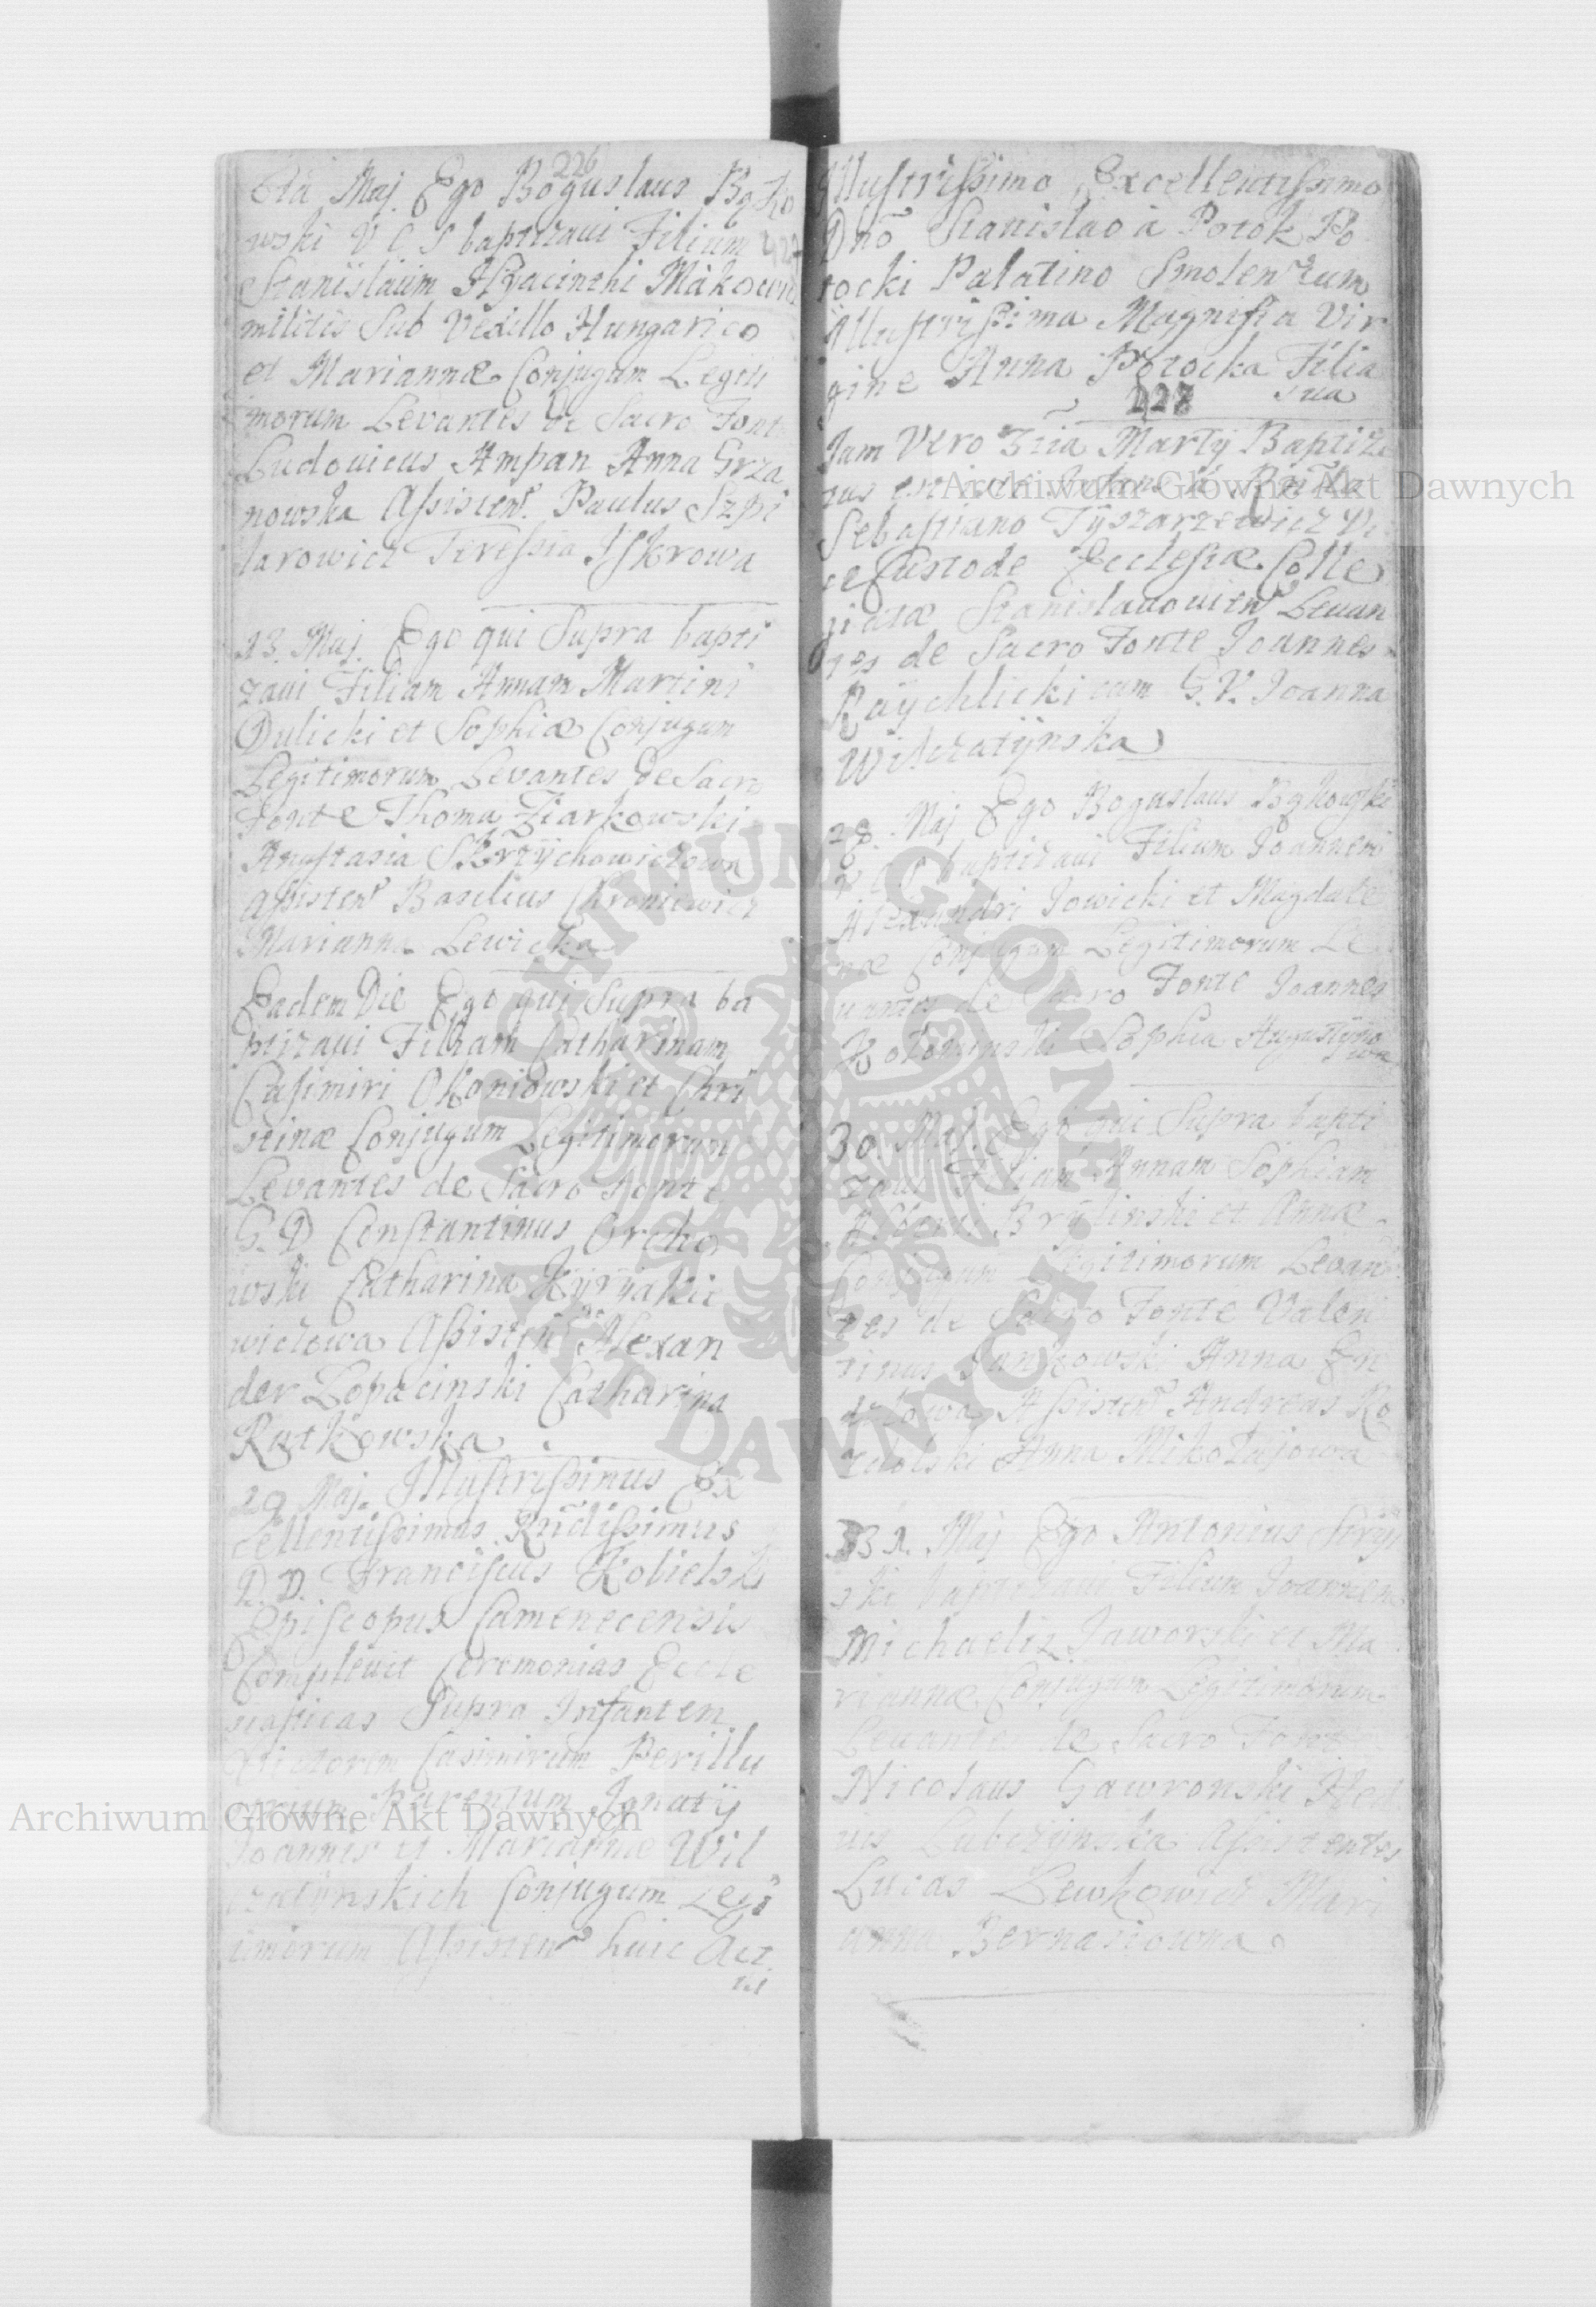 226
Maj. Ego Boguslaus Bąko
wski V C S baptizavi Filium
Stanislaum Hyacinthi Makown
militis Sub Vexillo Hungarico
et Mariannæ Conjugum Legiti
morum Levantes de Sacro Font
Ludovicus Ampan Anna Grza
nowska Assisten. Paulus Szpi
larowicz Teressia Iskrowa
23. Maj. Ego qui Supra bapti
zavi Filiam Annam Martini
Dulicki et Sophiæ Conjugum
Legitimorum Levantes de Sacro
Fonte Thoma Ziarkowski
Anastasia Skrzÿchowiczown
Assisten Basilius Chroniewicz
Marianna Lewicka
Eadem Die Ego qui Supra ba
ptizavi Filiam Catharinam
Casimiri Okoniowski et Chri
stinæ Conjugum Legitimorum
Levantes de Sacro Fonte
G. D Constantinus Orcho
wski Catharina Kÿrÿakie
wiczowa Assisten Alexan
der Lopacinski Catharina
Rutkowska
29 Maj. Illustrissimus Ex
cellentissimus Rndissimus
D. D. Franciscus Kobielski
Episcopus Camenecensis
Complevit Ceremonias Eccle
siasticas Supra Infantem
Casimirum Perillu
Parentum Ignatÿ
Joannis et Mariannæ Wil
czatÿnskich Conjugum Legi
timorum Assisten huic Act
ui
Illustrissimo Excellentissimo
Dnō Stanislao à Potok Po
tocki Palatino Smolenscum
Illustrissima Magnifica Vir
gine Anna Potocka Filia
sua
227
Jam Vero 3tia Martÿ Baptiza
tus est
Sebastiano Tÿszarzewicz Vi
ce Custode Ecclesiæ Colle
giatæ Stanislavovien Levan
tes de Sacro Fonte Joannes
Raÿchlicki cum G. V. Joanna
Wilczatÿnska
28. Maj Ego Boguslaus Bąkowski
V C S baptizavi Filium Joannem
Alexandri Jowicki et Magdale
næ Conjugum Legitimorum Le
vantes de Sacro Fonte Joannes
Sophia Augustÿno
wna
30. Maj. Ego qui Supra bapti
zavi Filiam Annam Sophiam
Alberti Brÿlinski et Annæ
Conjugum Legitimorum Levan
tes de Sacro Fonte Valen
tinus Jankowski Anna
Assisten Andreas Ro
Anna Mikołajowa
31. Maj Ego Antonius Strÿi
ski baptizavi Filium Joannem
Michaelis Jaworski et Ma
riannæ Conjugum Legitimorum
Levantes de Sacro Fonte
Nicolaus Gawronski Hed
vis Assistentes
Lucas Lewkowicz Mari
anna Bernasiowna
Archiwum Główne Akt Dawnych
Archiwum Główne Akt Dawnych
ARCHIWUM GŁÓWNE
AKT DAWNYCH